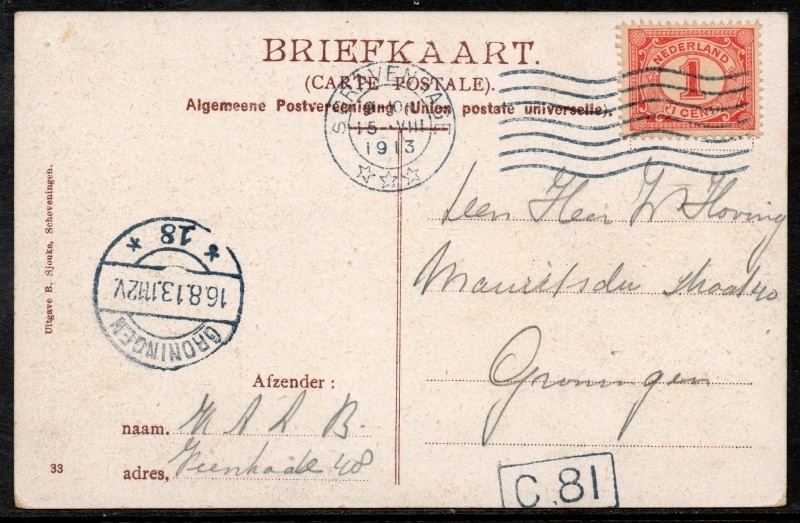 BRIEFKAART.
(CARTE POSTALE).
Algemeene Postvereeniging (Union postale universelle).
NEDERLAND
1
1 CENT
'S-GRAVENHAGE
15 VIII
1913
Uitgave B. Sjouke, Scheveningen.
* 18 *
16.8.13.1112V.
GRONINGEN
Den Heer W Hoving
Groningen
Afzender :
naam. M A L B.
adres, Veenkade 48
33
C.81